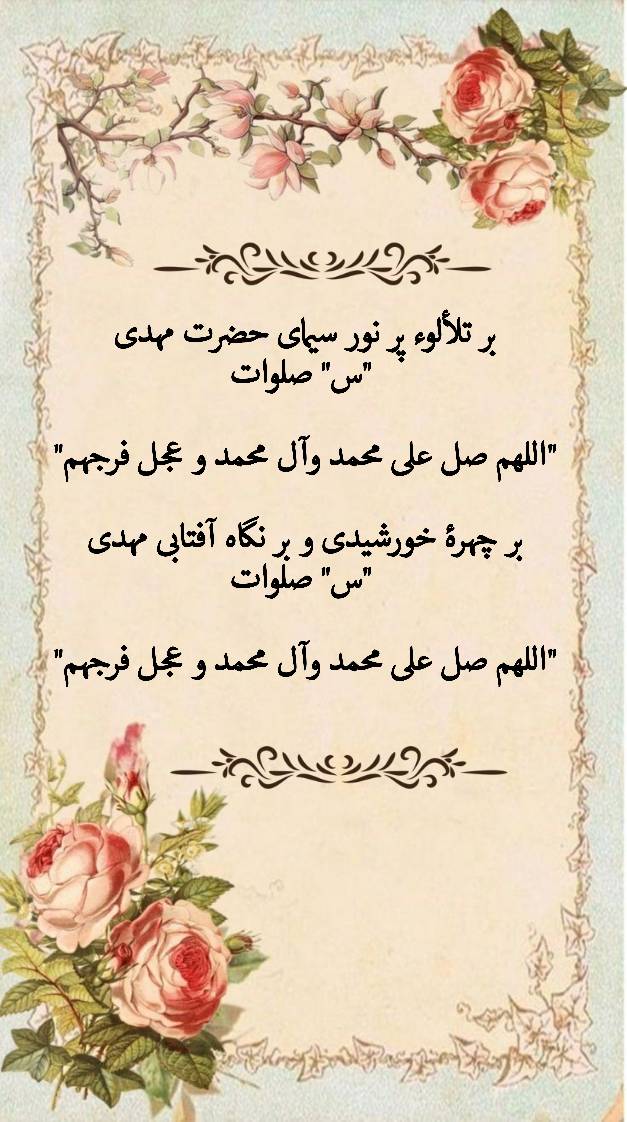 بر تلألوء پر نور سیمای حضرت مهدی
"س" صلوات
"اللهم صل علی محمد وآل محمد و عجل فرجهم"
بر چهرهٔ خورشیدی و بر نگاه آفتابی مهدی
"س" صلوات
"اللهم صل علی محمد وآل محمد و عجل فرجهم"